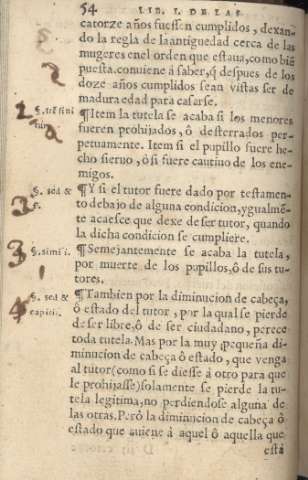 54 LIB. I. DE LAS
catorze años fuessen cumplidos, dexan-
do la regla de la antiguedad cerca de las
mugeres enel orden que estaua, como biẽ
puesta. conuiene á saber, q̃ despues de los
doze años cumplidos sean vistas ser de
madura edad para casarse.
¶Item la tutela se acaba si los menores
fueren prohijados, ô desterrados per-
petuamente. Item si el pupillo fuere he-
cho sieruo, ô si fuere cautiuo de los ene-
migos.
§. sed &
¶Y si el tutor fuere dado por testamen-
to debajo de alguna condicion, ygualmẽ-
te acaesce que dexe de ser tutor, quando
la dicha condicion se cumpliere.
§. simi i.
¶Semejantemente se acaba la tutela,
por muerte de los pupillos, ô de sus tu-
tores.
§. sed &
capitis.
¶Tambien por la diminucion de cabeça,
ô estado del tutor, por la qual se pierde
de ser libre, ô de ser ciudadano, perece
toda tutela. Mas por la muy pequeña di-
minucion de cabeça ô estado, que venga
al tutor (como si se diesse á otro para que
le prohijasse) solamente se pierde la tu-
tela legitima, no perdiendose alguna de
las otras. Però la diminucion de cabeça ô
estado que auiene á aquel ô aquella que
está